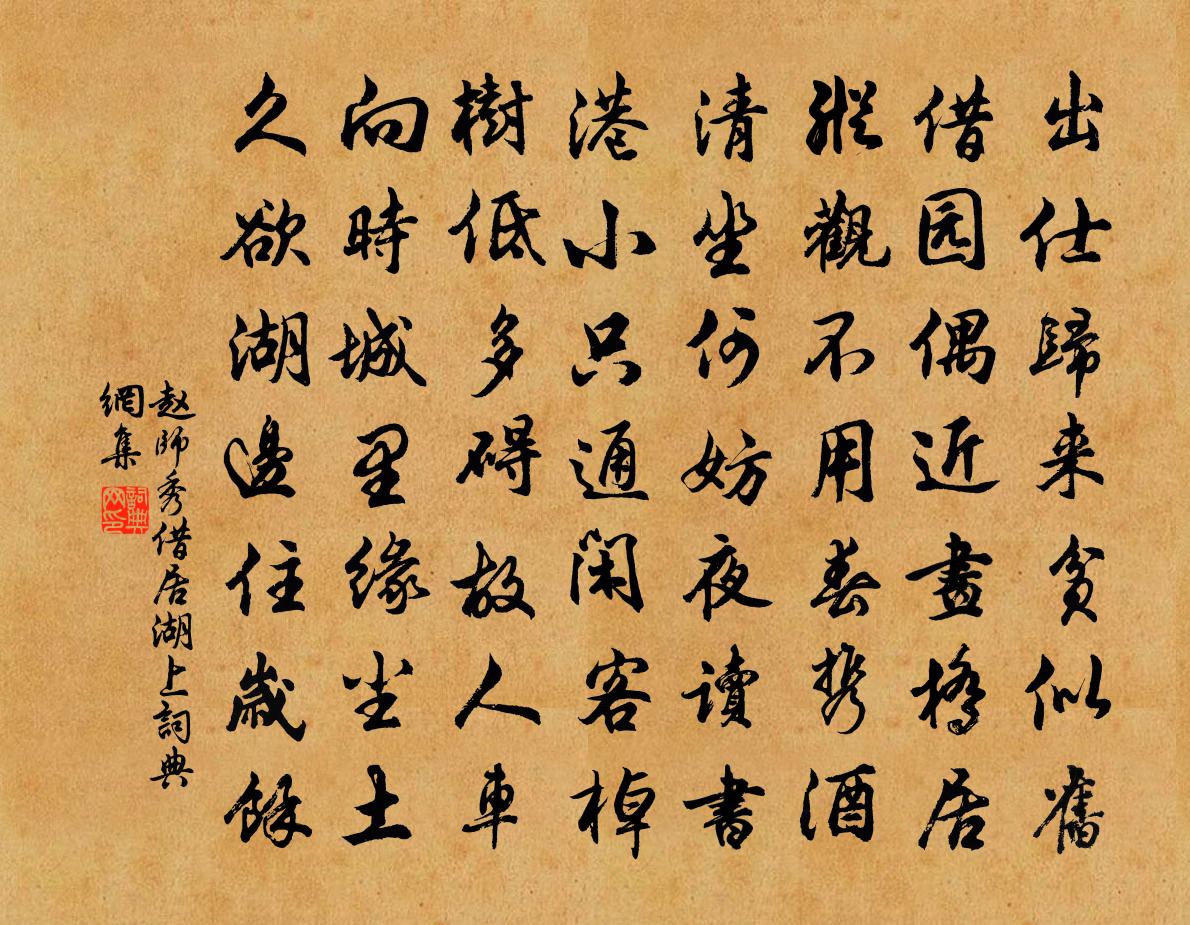 出仕歸来貧似舊
借园偶近畫橋居
縱觀不用春携酒
清坐何妨夜讀書
港小只通閑客棹
樹低多碍故人車
向時城里緣尘土
久欲湖邊住歲餘
赵師秀借居湖上詞典
網集
詞典
网印